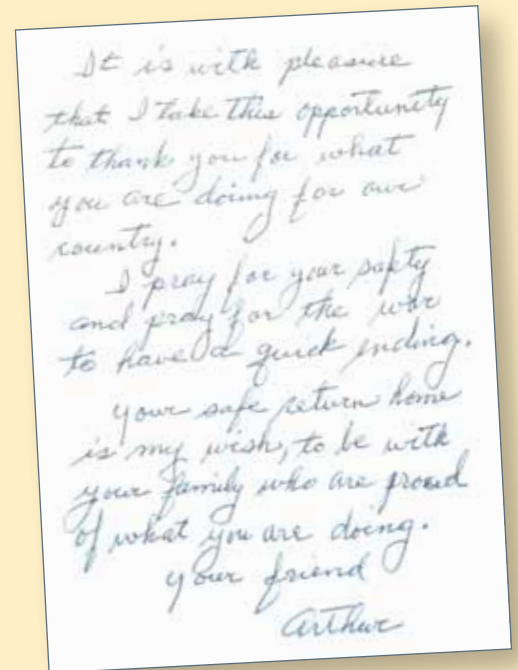 It is with pleasure
that I take this opportunity
to thank you for what
you are doing for our
country.
I pray for your safty
and pray for the war
to have a quick ending.
Your safe return home
is my wish, to be with
your family who are proud
of what you are doing.
Your friend
Arthur